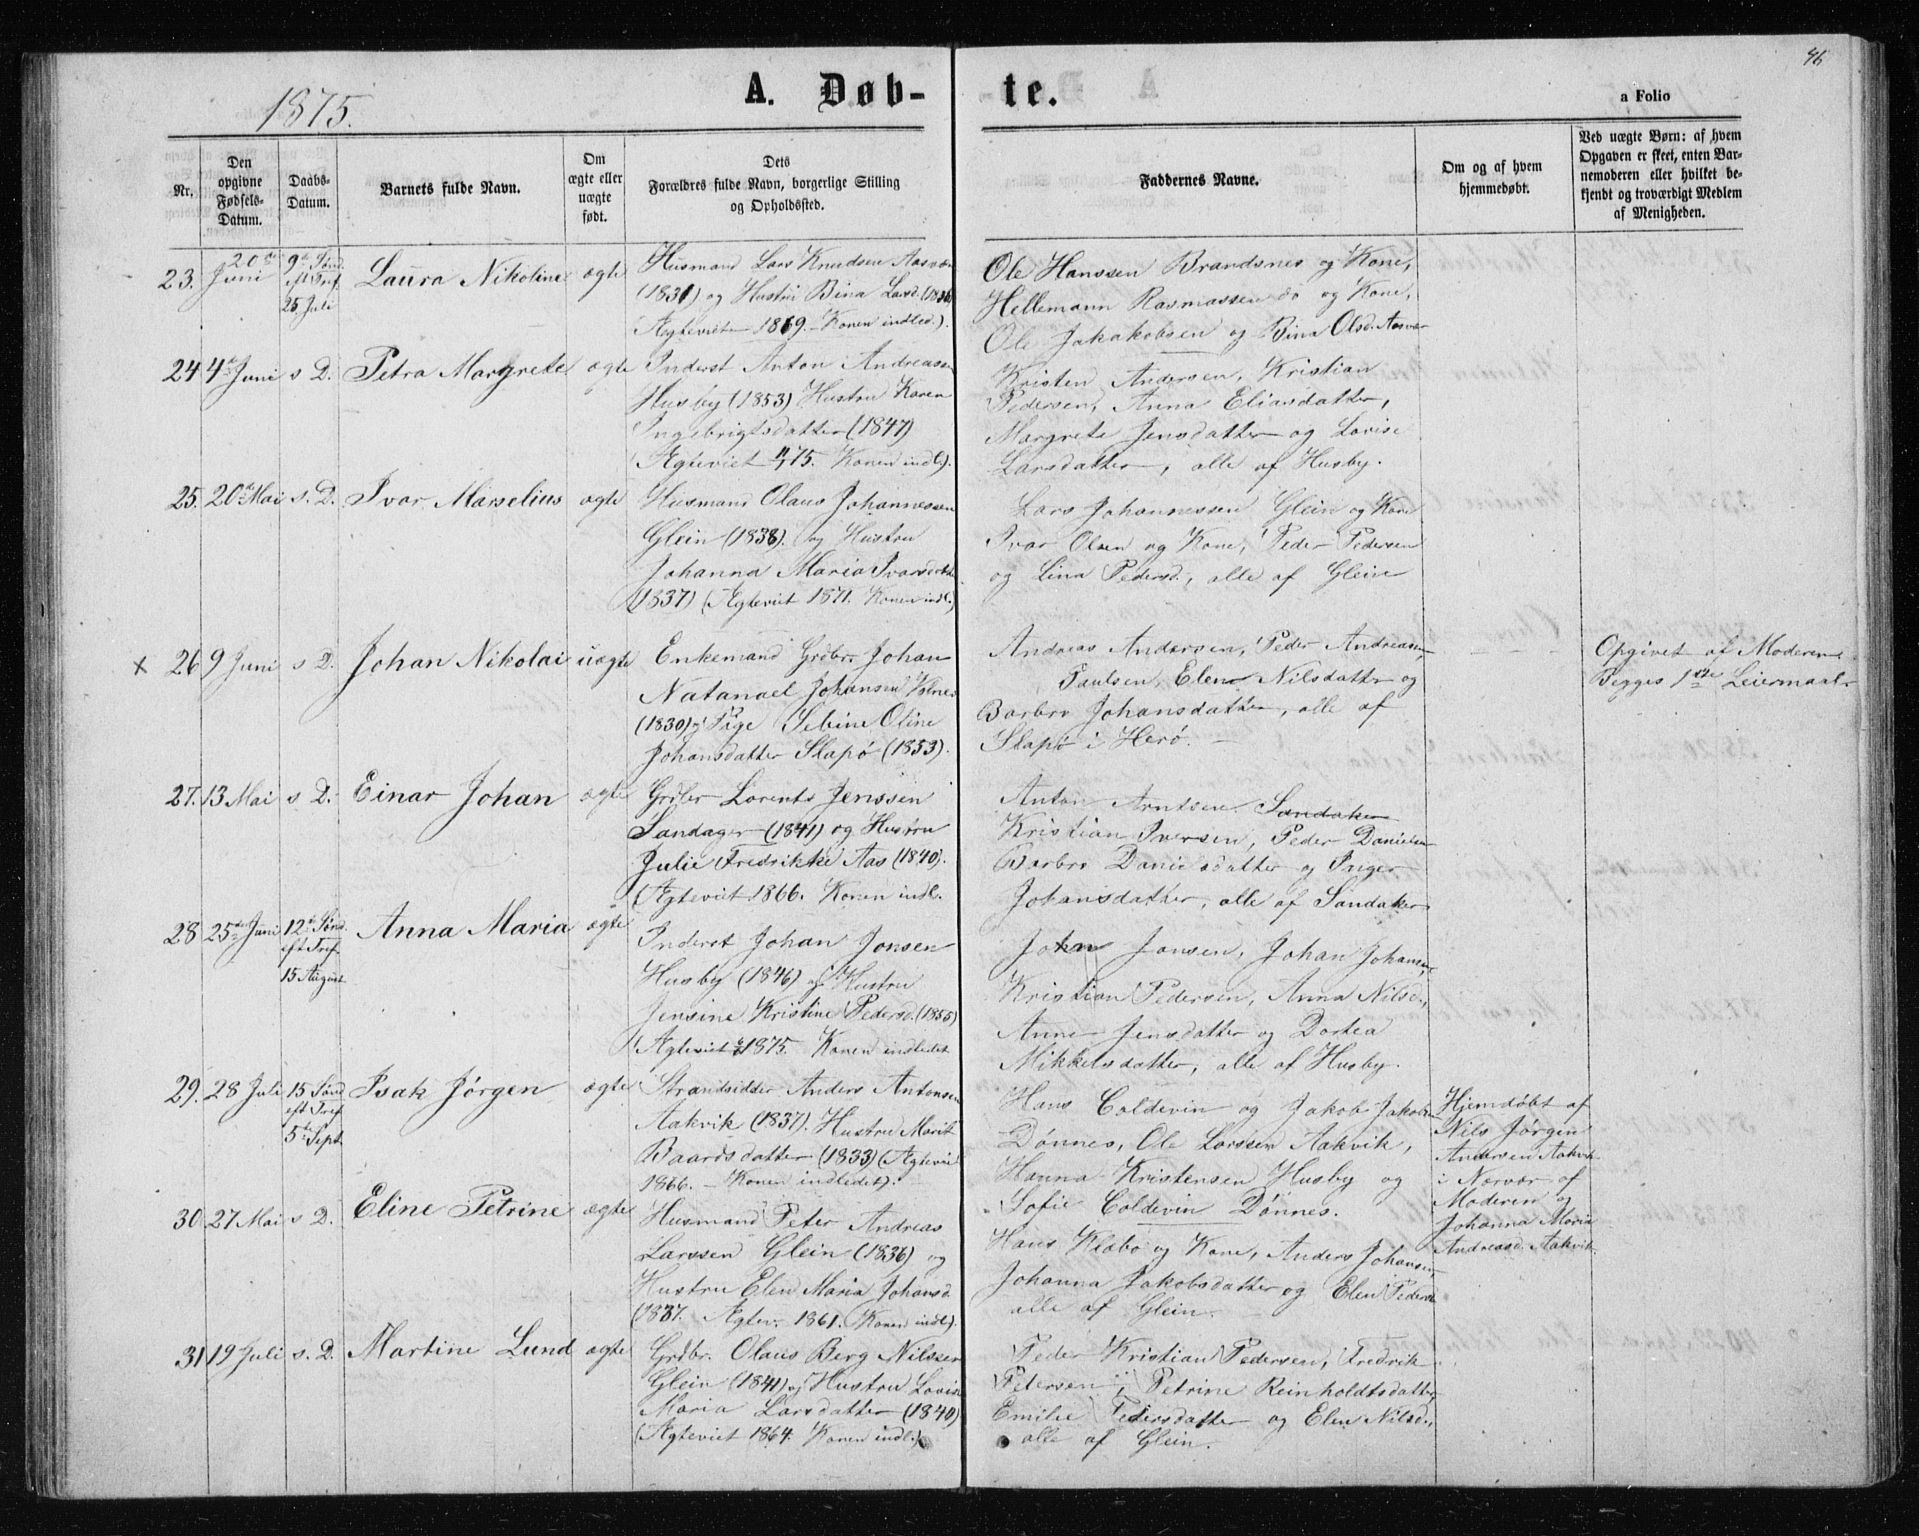 46
1875.
A. Døb-
te.
a Folio
Nr.
Den
opgivne
Fødsels-
Datum.
Daabs-
Datum.
Barnets fulde Navn.
Om
ægte eller
uægte
født.
Dets
Forældres fulde Navn, borgerlige Stilling
og Opholdssted.
Faddernes Navne.
Om og af hvem
hjemmedøbt.
Ved uægte Børn: af hvem
Opgaven er skeet, enten Bar-
nemoderen eller hvilket be-
kjendt og troværdigt Medlem
af Menigheden.
23.
20de
Juni
9de Sønd.
eft Tref.
25. Juli
Laura Nikoline
ægte
Husmand Lars Knudsen Aasvær
(1831) og Hustru Bina Larsd. (1836
Ægteviet 1869. - Konen indled.).
Ole Hanssen Brandsnes og Kone,
Hellemann Rasmassen do og Kone,
Ole Jakakobsen og Bina Olsd. Aasvær
24
4de Juni
s D.
Petra Margrete
ægte
Inderst Anton Andreasen
Husby (1853) Hustru Karen
Ingebrigtsdatter (1847)
(Ægteviet 75. Konen indl.).
Kristen Andersen, Kristian
Pedersen, Anna Eliasdatter,
Margrete Jensdatter og Lovise
Larsdatter, alle af Husby.
25.
20de Mai
s. D.
Ivar Marselius
ægte
Husmand Olaus Johannessen
Glein (1838). og Hustru
Johanna Maria Ivarsdatter
1837) (Ægteviet 1871. Konen indl.)
Lars Johannessen Glein og Kone
Ivar Olsen og Kone, Peder Pedersen
og Lina Pedersd., alle af Glein
x 26
9 Juni
s D.
Johan Nikolai
uægte
Enkemand Grdbr. Johan
Natanael Johansen
(1830) og Pige Sebine Oline
Johansdatter Slapø (1853).
Andreas Andersen, Peder Andreasen,
Paulsen, Elen Nilsdatter og
Barbro Johansdatter, alle af
Slapø i Herø. -
- - -
Opgivet af Moderen
Begges 1ste Leiermaal.
27.
13 Mai
s D.
Einar Johan
ægte
Grdbr Lorents Jenssen
Sandager (1841) og Hustru
Julie Fredrikke Aas (1840).
(Ægteviet 1866. Konen indl.
Anton Arntsen Sandaker
Kristian Iversen, Peder Danielsen
Barbro Danielsdatter og Inger
Johansdatter, alle af Sandaker
28
25de Juni
12te Sønd.
eft Tref.
15 August
Anna Maria
ægte
Inderst Johan Jonsen
Husby (1846) og Hustru
Jensine Kristine Pedersd. (1855)
(Ægteviet 1875. Konen indledet
John Jonsen, Johan Johansen,
Kristian Pedersen, Anna Nilsd.,
Anne Jensdatter og Dortea
Mikkelsdatter, alle af Husby.
29.
28 Juli
15 Sønd
eft Tref
5te Sept.
Isak Jørgen
ægte
Strandsidder Anders Antonsen
Aakvik (1837). Hustru Marit
Baardsdatter (1833) (Ægteviet
1866. - Konen indledet).
Hans Coldevin og Jakob Jakobsen
Dønnes, Ole Larssen Aakvik,
Hanna Kristensen Husby og
Sofie Coldevin Dønnes.
Hjemdøbt af
Nils Jørgen
Andersen Aakvik
i Nærvær af
Moderen og
Johanna Maria
Andreasd. Aakvik
30
27 Mai
s D.
Eline Petrine
ægte
Husmand Peter Andreas
Larssen Glein (1836) og
Hustru Elen Maria Johansd.
(1837. Ægtev. 1861. Konen indl.).
Hans Klæbo og Kone, Anders Johansen,
Johanna Jakobsdatter og Elen Pedersd
alle af Glein.
31
19 Juli
s. D.
Martine Lund
ægte
Grdbr. Olaus Berg Nilssen
Glein (1841) og Hustru Lovise
Maria Larsdatter (1840)
(Ægteviet 1864. Konen indl.)
Peder Kristian Pedersen, Fredrik
Petersen, Petrine Reinholdtsdatter,
Emilie Pedersdatter og Elen Nilsd.,
alle af Glein.